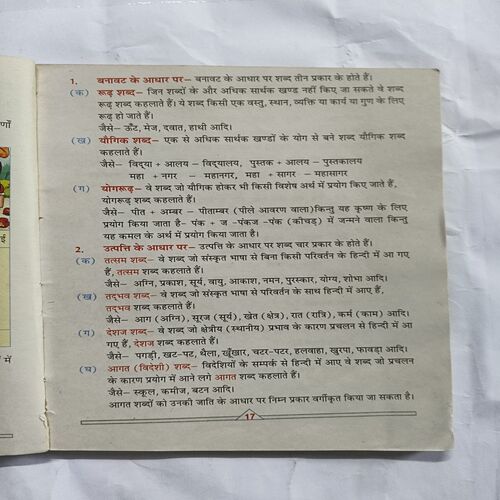 1. बनावट के आधार पर– बनावट के आधार पर शब्द तीन प्रकार के होते हैं।
(क) रूढ़ शब्द– जिन शब्दों के और अधिक सार्थक खण्ड नहीं किए जा सकते वे शब्द
रूढ़ शब्द कहलाते हैं। ये शब्द किसी एक वस्तु, स्थान, व्यक्ति या कार्य या गुण के लिए
रूढ़ हो जाते हैं।
जैसे– ऊँट, मेज, दवात, हाथी आदि।
(ख) यौगिक शब्द– एक से अधिक सार्थक खण्डों के योग से बने शब्द यौगिक शब्द
कहलाते हैं।
जैसे– विद्या + आलय – विद्यालय, पुस्तक + आलय – पुस्तकालय
महा + नगर – महानगर, महा + सागर – महासागर
(ग) योगरूढ़– वे शब्द जो यौगिक होकर भी किसी विशेष अर्थ में प्रयोग किए जाते हैं,
योगरूढ़ शब्द कहलाते हैं।
जैसे– पीत + अम्बर – पीताम्बर (पीले आवरण वाला)किन्तु यह कृष्ण के लिए
प्रयोग किया जाता है– पंक + ज –पंकज –पंक (कीचड़) में जन्मने वाला किन्तु
यह कमल के अर्थ में प्रयोग किया जाता है।
2. उत्पत्ति के आधार पर– उत्पत्ति के आधार पर शब्द चार प्रकार के होते हैं।
(क) तत्सम शब्द– वे शब्द जो संस्कृत भाषा से बिना किसी परिवर्तन के हिन्दी में आ गए
हैं, तत्सम शब्द कहलाते हैं।
जैसे– अग्नि, प्रकाश, सूर्य, वायु, आकाश, नमन, पुरस्कार, योग्य, शोभा आदि।
(ख) तद्भव शब्द– वे शब्द जो संस्कृत भाषा से परिवर्तन के साथ हिन्दी में आए हैं,
तद्भव शब्द कहलाते हैं।
जैसे– आग (अग्नि), सूरज (सूर्य), खेत (क्षेत्र), रात (रात्रि), कर्म (काम) आदि।
(ग) देशज शब्द– वे शब्द जो क्षेत्रीय (स्थानीय) प्रभाव के कारण प्रचलन से हिन्दी में आ
गए हैं, देशज शब्द कहलाते हैं।
जैसे– पगड़ी, खट-पट, थैला, खूँखार, चटर-पटर, हलवाहा, खुरपा, फावड़ा आदि।
(घ) आगत (विदेशी) शब्द– विदेशियों के सम्पर्क से हिन्दी में आए वे शब्द जो प्रचलन
के कारण प्रयोग में आने लगे आगत शब्द कहलाते हैं।
जैसे– स्कूल, कमीज, बटन आदि।
आगत शब्दों को उनकी जाति के आधार पर निम्न प्रकार वर्गीकृत किया जा सकता है।
17